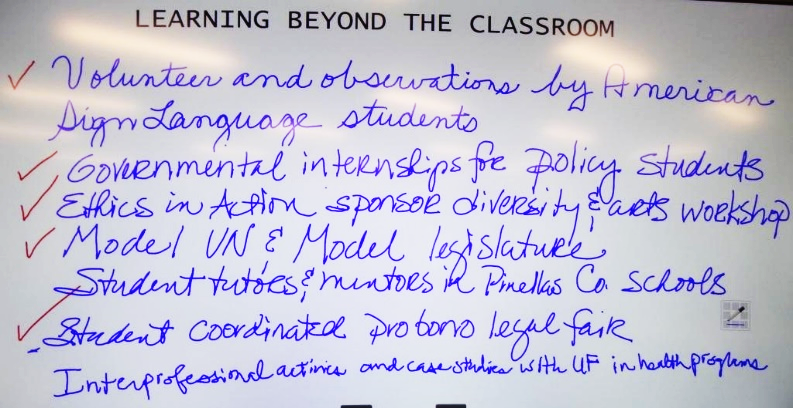 LEARNING BEYOND THE CLASSROOM
Volunteer and observations by American
Sign Language students
Governmental internships for policy students
Ethics in Action sponsor diversity & arts workshop
Model UN & Model legislature
Student tutors & mentors in Pinellas Co. schools
Student coordinated pro bono legal fair
Interprofessional activities and case studies with UF in health programs